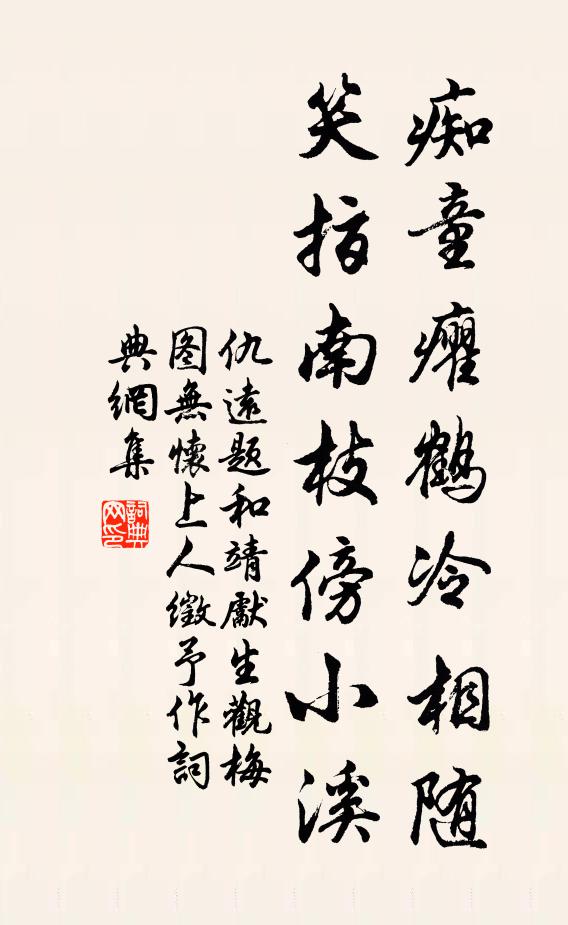 痴童癯鶴冷相随
笑指南枝傍小溪
仇遠題和靖獻生觀梅
图無懷上人徵予作詞
典網集
詞典网印